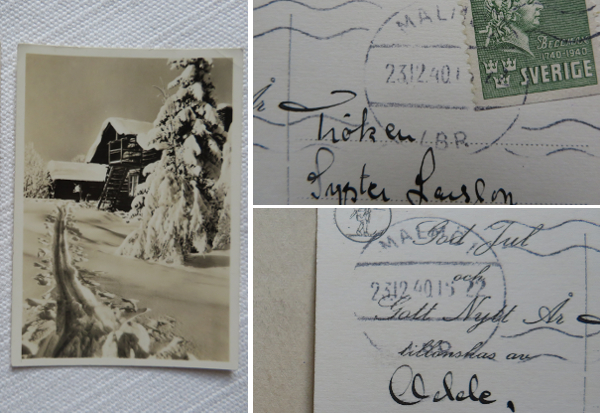 MALMÖ
23.12.40.15
LBR
Bellman
1740-1940
SVERIGE
Fröken
Syster Larsson
MALMÖ
23.12.40.15
God Jul
och
Gott Nytt År
tillönskas av
Adde,